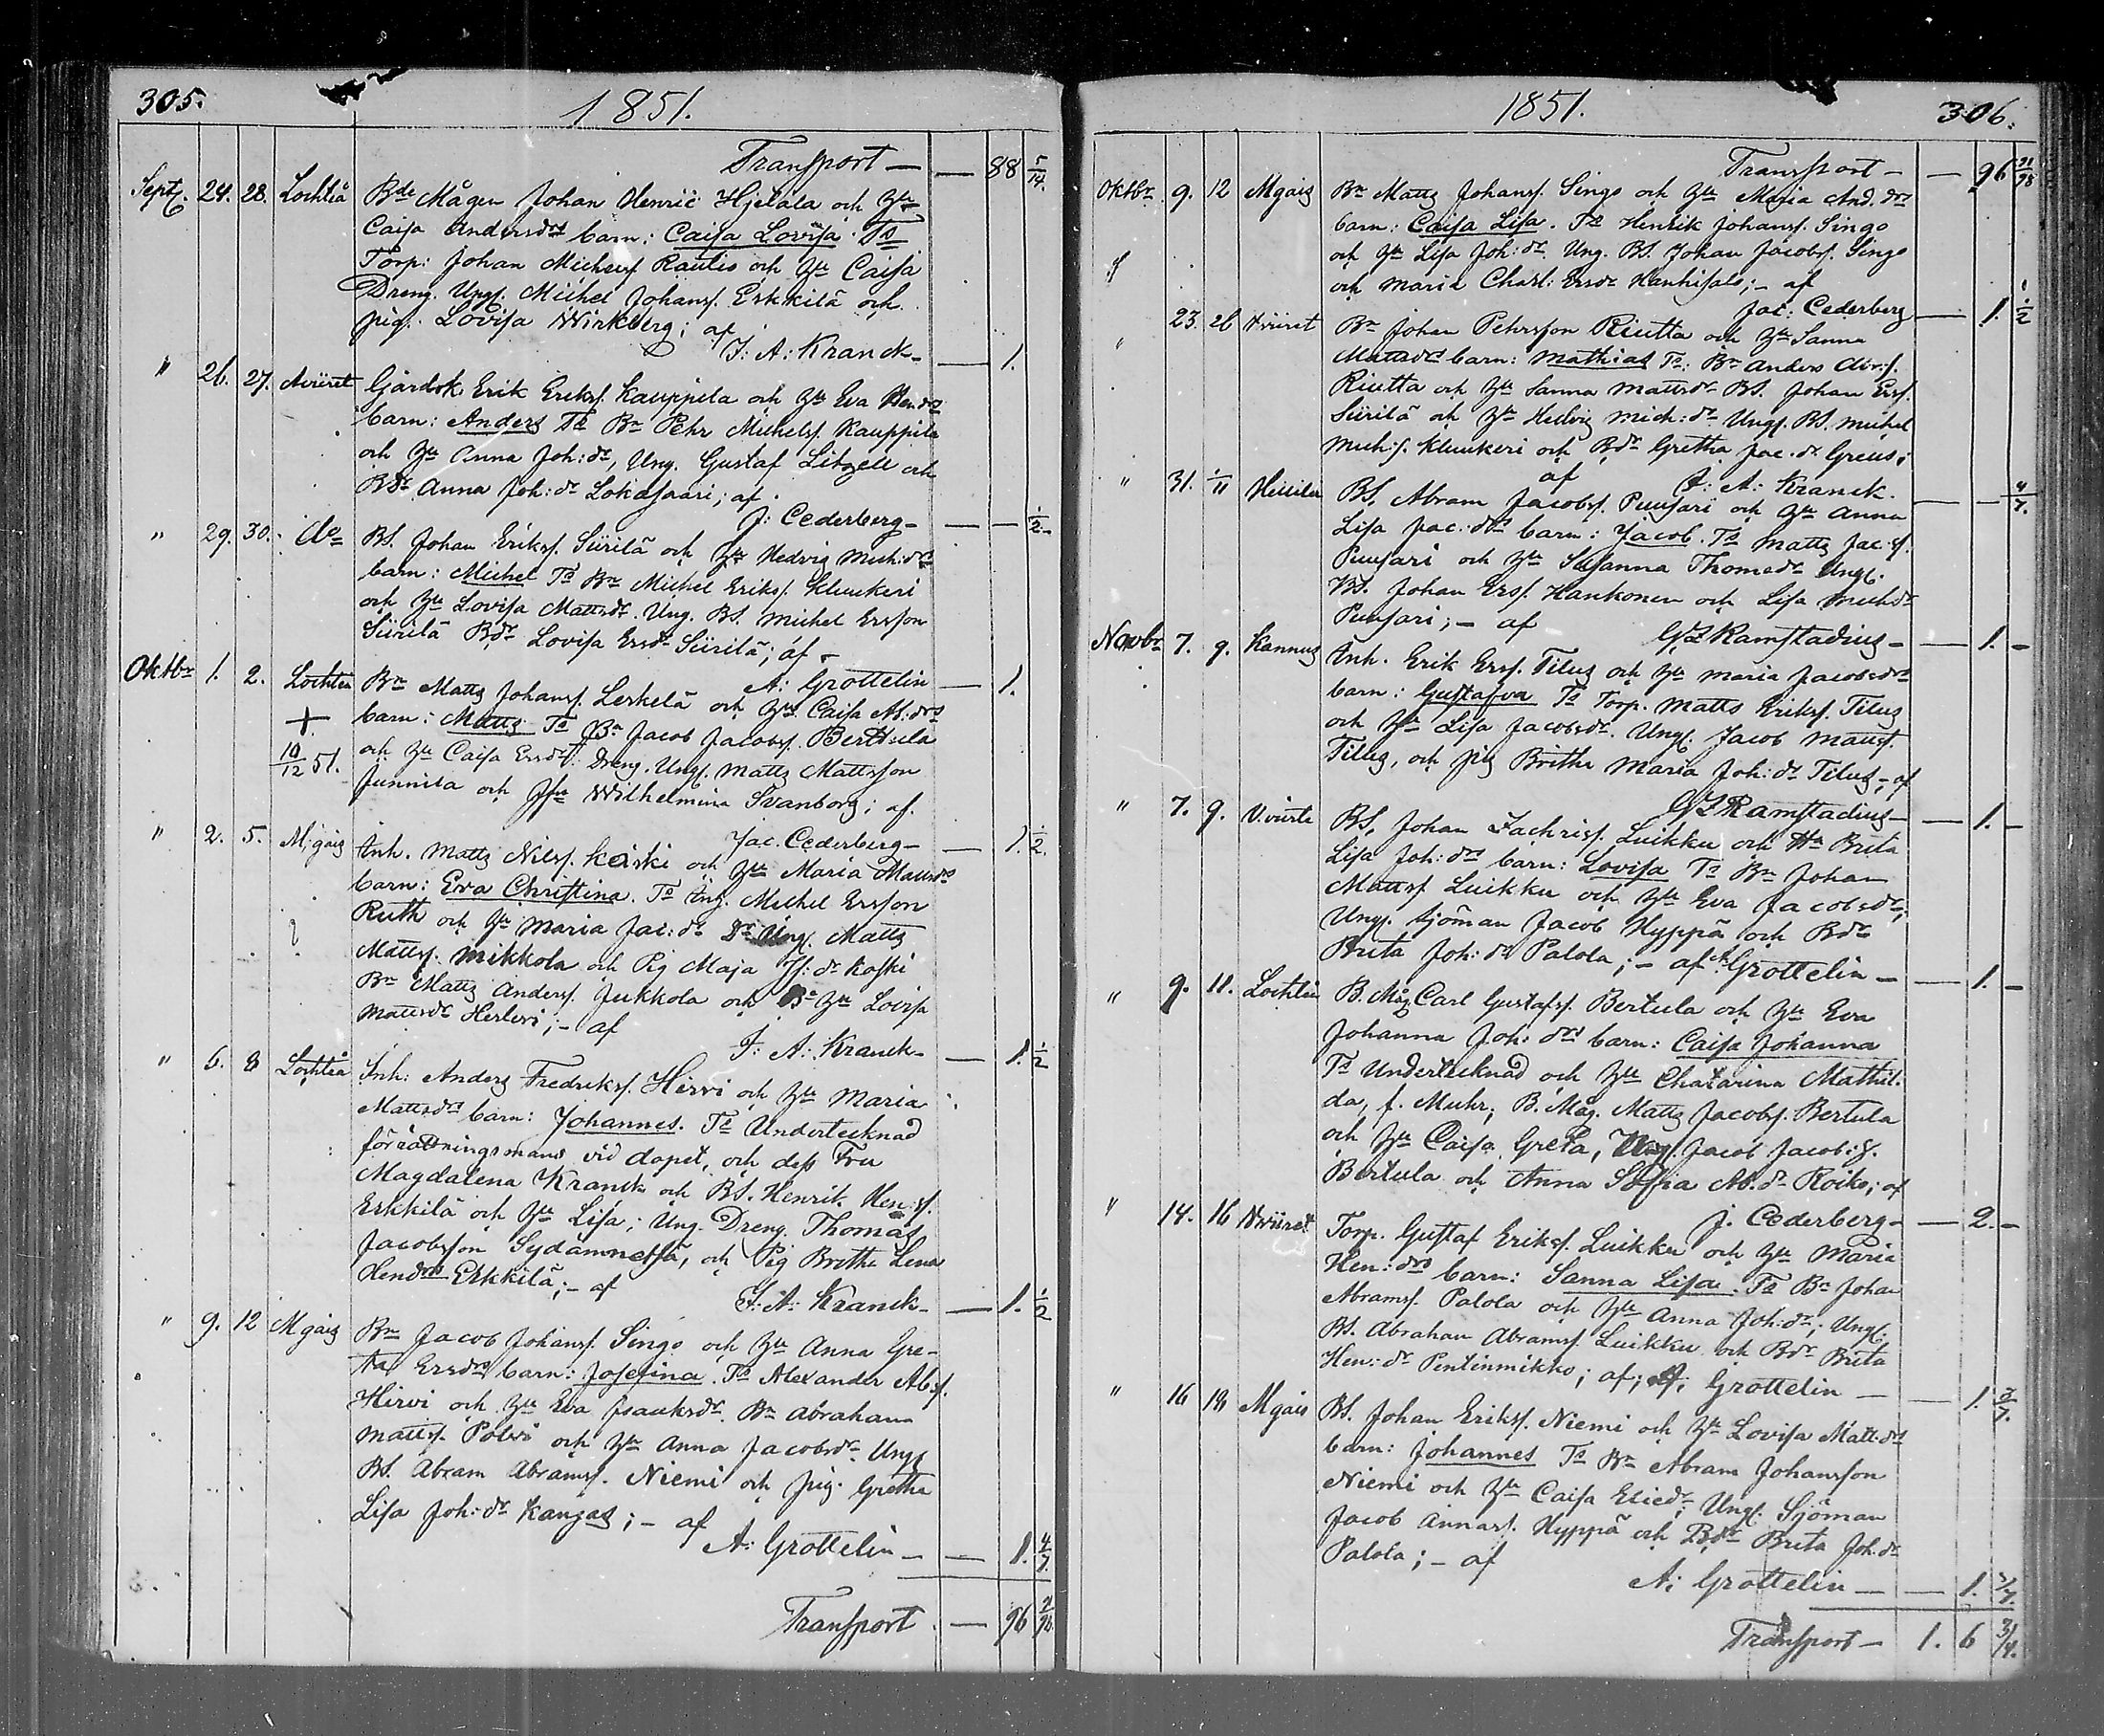 305. 1851.
Transport — — 88 5/14.
Sept. 24. 28. Lochteå Bde Mågen Johan Henric Hjelala och Hu
Caisa Andersdrs barn: Caisa Lovisa. Ts
Torp: Johan Michelss. Rautio och Hu Caisa
Dreng. Ungs. Michel Johanss. Erkkilä och
pig. Lovisa Wirkberg; af
J: A: Kranck — — 1.
" 26. 27. Gårdsk. Erik Erikss. Kauppila och Hu Eva Hendrs
barn: Anders Ts Bn Pehr Michelss. Kauppila
och Hu Anna Joh:dr, Ung. Gustaf Litzell och
Bdr Anna Joh:dr Lokasaari; af.
J: Cederberg — — — 1/2.
" 29. 30. do BS. Johan Erikss. Siirilä och Hu Hedvig Mich:drs
barn: Michel Ts Bn Michel Erikss. Kluukeri
och Hu Lovisa Mattsdr. Ung. BS. Michel Ersson
Siirilä Bdr Lovisa Ersdr Siirilä; af
A: Grottelin — 1.
Oktbr 1. 2. Lochteå Bn Matts Johanss. Leskelä och Hu Caisa Ab:drs
+ barn: Matts Ts Bn Jacob Jacobss. Berttula
10/12 51. och Hu Caisa Ersdr. Dreng. Ungs. Matts Mattsson
Junnila och Jfru Wilhelmina Svanborg; af.
Jac. Cederberg — — 1. 1/2.
" 2. 5. M:gais Inh. Matts Nilss. Koiski och Hu Maria Mattsdrs
barn: Eva Christina. Ts Ing. Michel Ersson
Ruth och Hu Maria Jac:dr Dr Ungs. Matts
Mattss. Mikkola och Pig Maja dr Koski
Bn Matts Anderss. Jukkola och Hu Lovisa
Mattsdr Herlevi; — af
J: A: Kranck — — 1. 1/2
" 6. 8 Lochteå Inh: Anders Fredrikss. Hirvi och Hu Maria
Mattsdrs barn: Johannes. Ts Undertecknad
förrättningsmans vid dopet, och dess Fru
Magdalena Kranck och BS. Henrik Hen:s.
Erkkilä och Hu Lisa; Ung. Dreng. Thomas
Jacobsson Sydämnetsä, och Pig Britha Lena
Hendrs Erkkilä; — af
J: A: Kranck — — 1. 1/2
" 9. 12 Mgais Bn Jacob Johanss. Singo och Hu Anna Gre-
ta Ersdrs barn: Josefina. Ts Alexander Abs.
Hirvi och Hu Eva Isaaksdr. Bn Abraham
Mattss. Polvi och Hu Anna Jacobsdr. Ungs
BS. Abram Abramss. Niemi och pig. Gretha
Lisa Joh:dr Kangas; — af
A: Grottelin — — 1. 4/7.
Transport. — 96
1851. 306.
Transport — — 96
Oktbr. 9. 12 Mgais Bn Matts Johanss. Singo och Hu Maria And.drs
barn: Caisa Lisa. Ts Henrik Johanss. Singo
och Hu Lisa Joh:dr. Ung. BS. Johan Jacobss. Singo
och Maria Charl: Ersdr Hanhisalo; — af
Jac: Cederberg — 1. 1/2
23. 26 Bn Johan Pehrsson Riutta och Hu Sanna
Mattsdrs barn: Mathias Ts: Bn Anders Abr:s.
Riutta och Hu Sanna Mattsdr BS. Johan Erss.
Siirilä och Hu Hedvig Mich:dr Ungs. BS. Michel
Mich:s. Kluukeri och Bdr Gretha Jac.dr Greus;
af J: A: Kranck. — — 4/7.
" 31. 1/11 BS. Abram Jacobss. Puusari och Hu Anna
Lisa Jac:drs barn: Jacob. Ts Matts Jac:s.
Puusari och Hu Susanna Thomedr Ungs.
BS. Johan Erss. Hankonen och Lisa Michdr
Puusari; — af
GZ Ramstadius — — 1. —
Novbr 7. 9. Kannus Inh. Erik Erss. Tilus och Hu Maria Jacobsdrs
barn: Gustafva Ts Torp. Matts Erikss. Tilus
och Hu Lisa Jacobsdr. Ungs. Jacob Mattss.
Tilus, och pig Britha Maria Joh:dr Tilus; — af
GZ Ramstadius — — 1. —
" 7. 9. BS. Johan Zachriss. Luikku och Hu Brita
Lisa Joh:drs barn: Lovisa Ts Bn Johan
Mattss. Luikku och Hu Eva Jacobsdr;
Ungs. Sjöman Jacob Hyppä och Bdr
Brita Joh:dr Palola; — af A: Grottelin — — 1. —
" 9. 11. Lochteå B. Måg Carl Gustafss. Bertula och Hu Eva
Johanna Joh:drs barn: Caisa Johanna
Ts Undertecknad och Hu Chatarina Mathil-
da, f. Muhr; B. Måg. Matts Jacobss. Bertula
och Hu Caisa Greta, Ungs. Jacob Jacob:s.
Bertula och Anna Sofia Ab.dr Roiko; af
J. Cederberg — — 2. —
" 14. 16 Torp. Gustaf Erikss. Luikku och Hu Maria
Hen:drs barn: Sanna Lisa. Ts Bn Johan
Abramss. Palola och Hu Anna Joh:dr; Ungs.
BS. Abraham Abramss. Luikku och Bdr Brita
Hen:dr Pentinmikko; af; A. Grottelin — — 1. 3/7.
" 16 18 Mgais BS. Johan Erikss. Niemi och Hu Lovisa Matt:drs
barn: Johannes Ts Bn Abram Johansson
Niemi och Hu Caisa Ericdr; Ungs. Sjöman
Jacob Annass. Hyppä och Bdr Brita Joh.dr
Palola; — af
A: Grottelin — — 1. 3/7.
Transport — 1. 6 3/4.